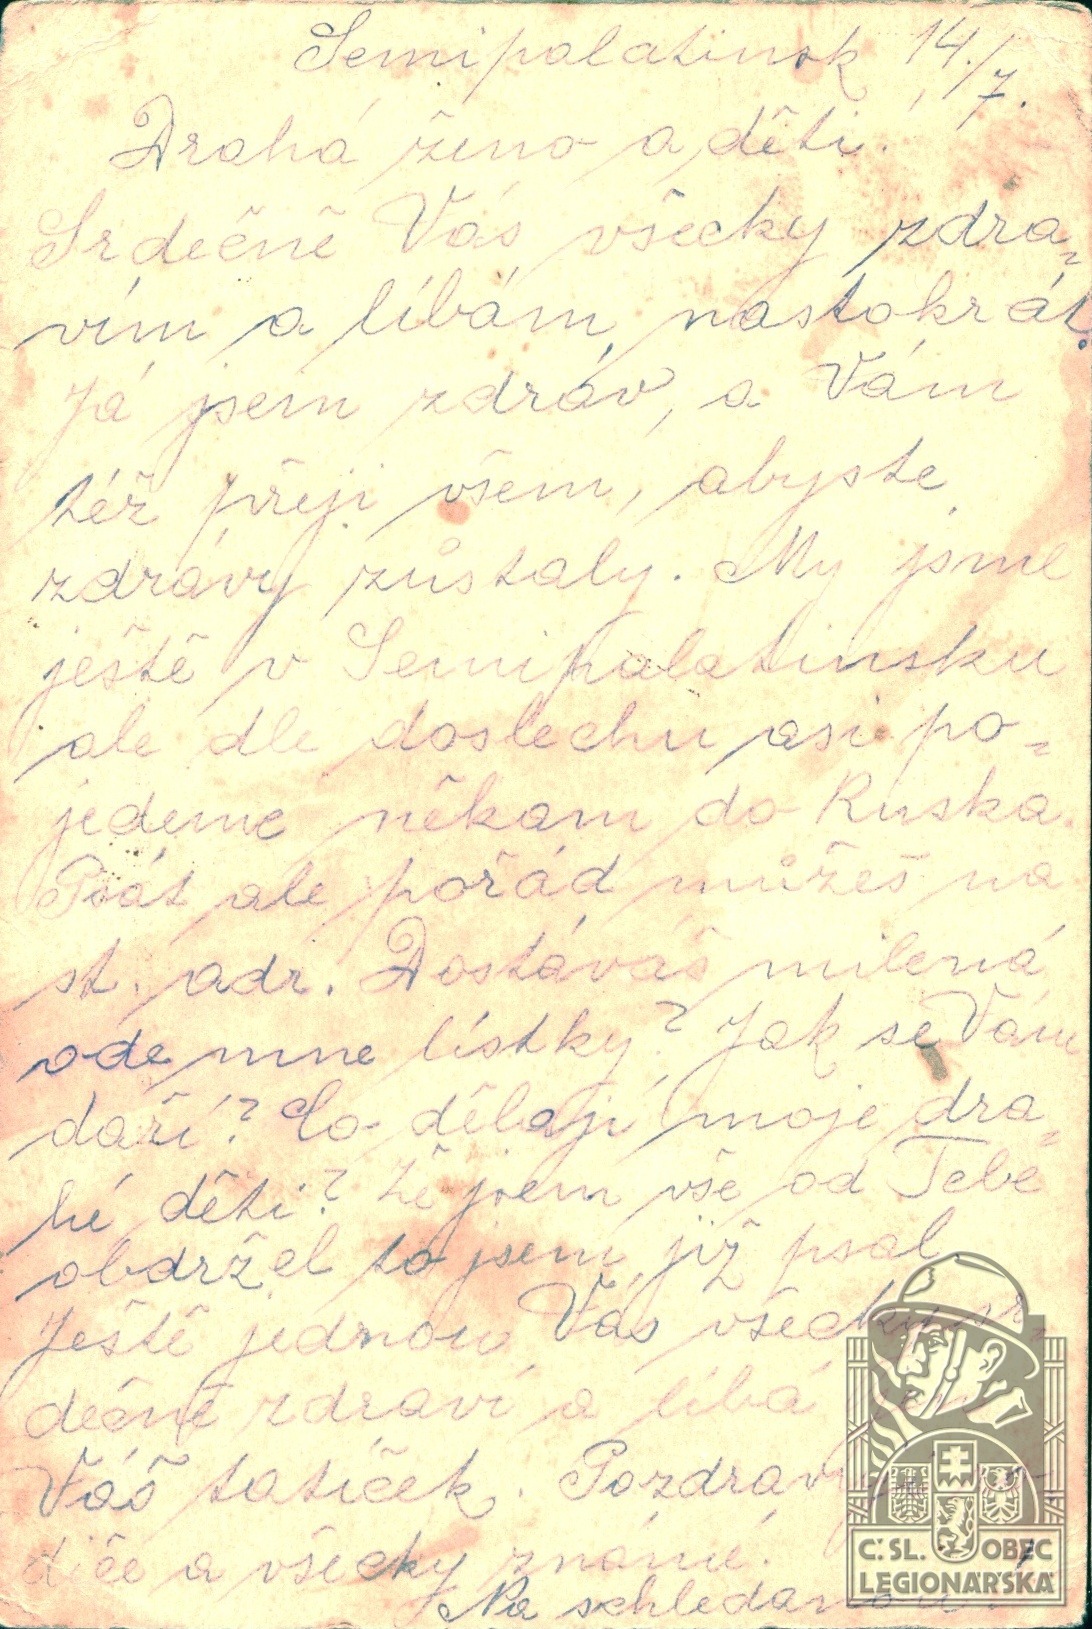 Semipalatinsk 14./7.
Drahá ženo a děti!
Srdečně Vás všecky zdra-
vím a líbám nastokrát.
Já jsem zdráv, a Vám
též přeji všem, abyste
zdrávy zůstaly. My jsme
ještě v Semipalatinsku
ale dle doslechu asi po-
jedeme někam do Ruska.
Psát ale pořád můžeš na
st. adr. Dostáváš milená
ode mne lístky? Jak se Vám
daří? Co dělají moje dra-
hé děti? Že jsem vše od Tebe
obdržel to jsem již psal.
Ještě jednou Vás všecky sr-
dečně zdraví a líbá
Váš tatíček. Pozdravuj
diče a všecky známé.
Na schledanou!
Č.SL. OBEC
LEGIONÁŘSKÁ